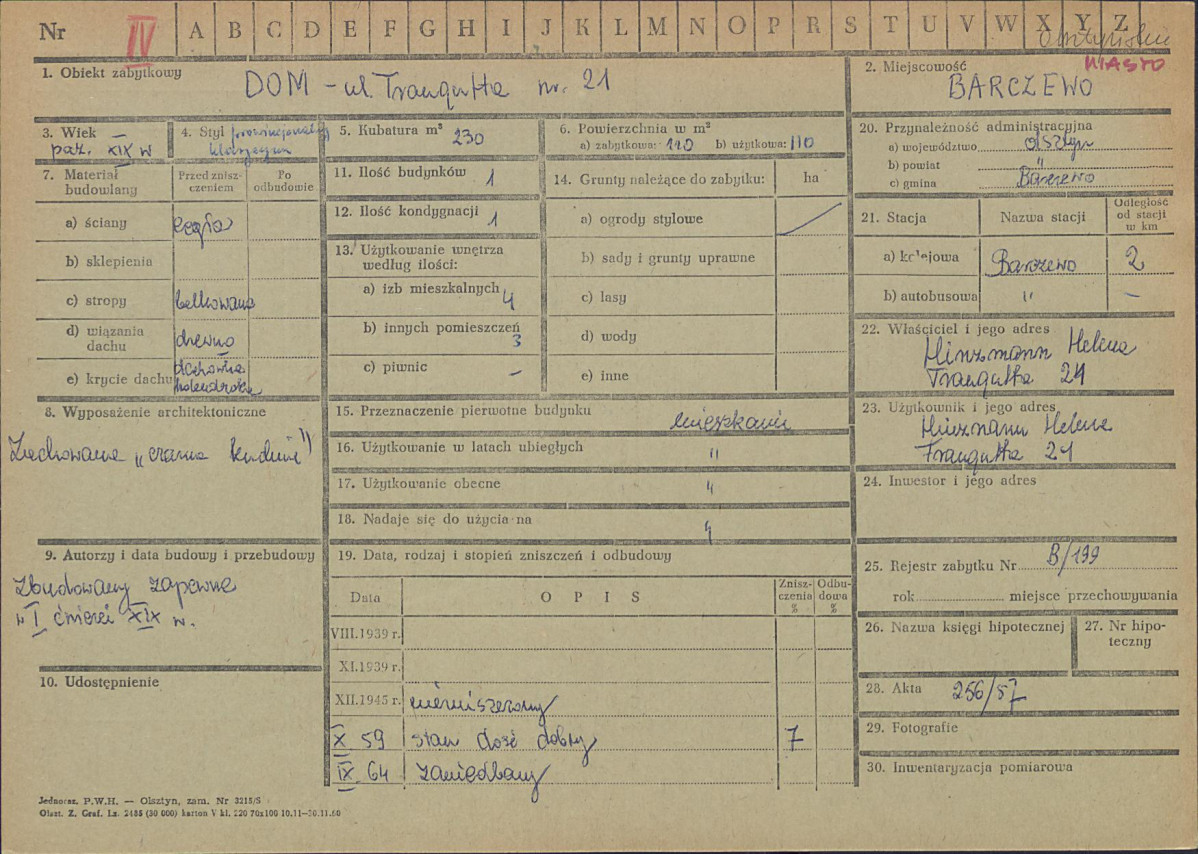 Nr IV A B C D E F G H I J K L M N O P R S T U V W X Y Z
MIASTO
1. Obiekt zabytkowy DOM - ul. Traugutta nr. 21
2. Miejscowość
BARCZEWO
3. Wiek
pocz. XIX w
4. Styl prowincjonalny
klasycyzm
5. Kubatura m³ 230
6. Powierzchnia w m²
a) zabytkowa: 110 b) użytkowa: 110
20. Przynależność administracyjna
a) województwo olsztyn
b) powiat "
c) gmina Barczewo
7. Materiał
budowlany
Przed znisz-
czeniem
Po
odbudowie
a) ściany cegła
b) sklepienia
c) stropy belkowane
d) wiązania
dachu drewno
e) krycie dachu dachówka
holenderka
11. Ilość budynków 1
12. Ilość kondygnacji 1
13. Użytkowanie wnętrza
według ilości:
a) izb mieszkalnych 4
b) innych pomieszczeń
3
c) piwnic —
14. Grunty należące do zabytku: ha
a) ogrody stylowe
b) sady i grunty uprawne
c) lasy
d) wody
e) inne
21. Stacja Nazwa stacji
Odległość
od stacji
w km
a) kolejowa Barczewo 2
b) autobusowa " —
22. Właściciel i jego adres
Hinzmann Helena
Traugutta 21
8. Wyposażenie architektoniczne
Zachowana „czarna kuchnia"
15. Przeznaczenie pierwotne budynku mieszkanie
16. Użytkowanie w latach ubiegłych "
17. Użytkowanie obecne "
18. Nadaje się do użycia na "
23. Użytkownik i jego adres
Hinzmann Helena
Traugutta 21
24. Inwestor i jego adres
9. Autorzy i data budowy i przebudowy
Zbudowany zapewne
w I ćwierci XIX w.
10. Udostępnienie
19. Data, rodzaj i stopień zniszczeń i odbudowy
Data O P I S
Znisz-
czenia
%
Odbu-
dowa
%
VIII.1939 r.
XI.1939 r.
XII.1945 r. niezniszczony
X 59 stan dość dobry 7
IX 64 zaniedbany
25. Rejestr zabytku Nr B/199
rok miejsce przechowywania
26. Nazwa księgi hipotecznej
27. Nr hipo-
teczny
28. Akta 256/57
29. Fotografie
30. Inwentaryzacja pomiarowa
Jednoraz. P.W.H. — Olsztyn, zam. Nr 3215/S
Olszt. Z. Graf. Lz. 2485 (30 000) karton V kl. 220 70x100 10.11—30.11.60